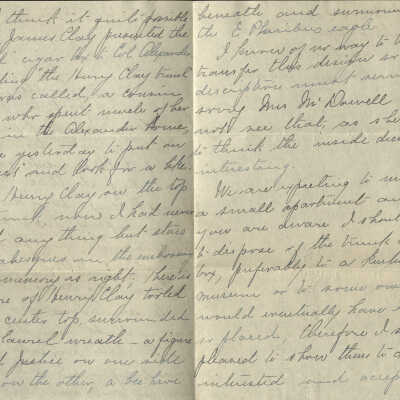 think it quite possible
James Clay presented the
cigar box to Col Alexander
"the Henry Clay trunk
was called, a cousin
who spent much of her
in the Alexander home,
yesterday to put on
and look for a like-
Henry Clay on the top
trunk, now I had never
anything but stars
arabesques in the embossing
memory is right, there is
of Henry Clay tooled
center top, surrounded
laurel wreath - a figure
Justice on one side
on the other, a bee hive
beneath and surmoun
the E Pluribus eagle
I know of no way to
transfer this design so
description must serve
sorry Mrs McDowell
not see that, as she
to think the inside
interesting.
We are expecting to
a small apartment an
you are aware I shou
to dispose of the trunk
box, preferably to a Kentu
museum or to some one
would eventually have
so placed, therefore I s
pleased to show them to a
interested and accep